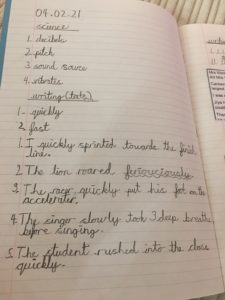 04.02.21
science
1. decibels
2. pitch
3. sound source
4. vibrates
writing (tests)
1- quickly
2. fast
1. I quickly sprinted towards the finish
line.
2. The lion roared feriousiously
3. The racer quickly put his foot on the
accelerater.
4. The singer slowly took 3 deep breaths
before singing.
5. The student rushed into the class
quickly.